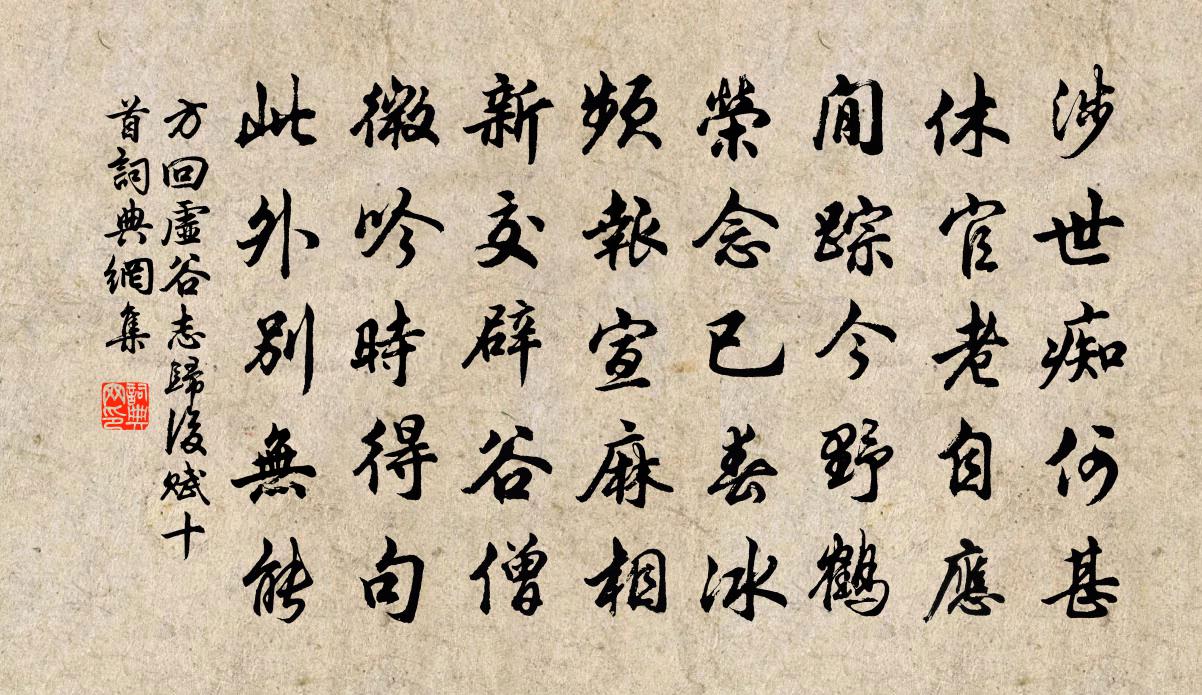 涉世痴何甚
休官老自應
閒踪今野鶴
榮念已春冰
頻報宣麻相
新交辟谷僧
微吟時得句
此外別無能
方回虛谷志歸後賦十
首詞典網集
詞典
网印